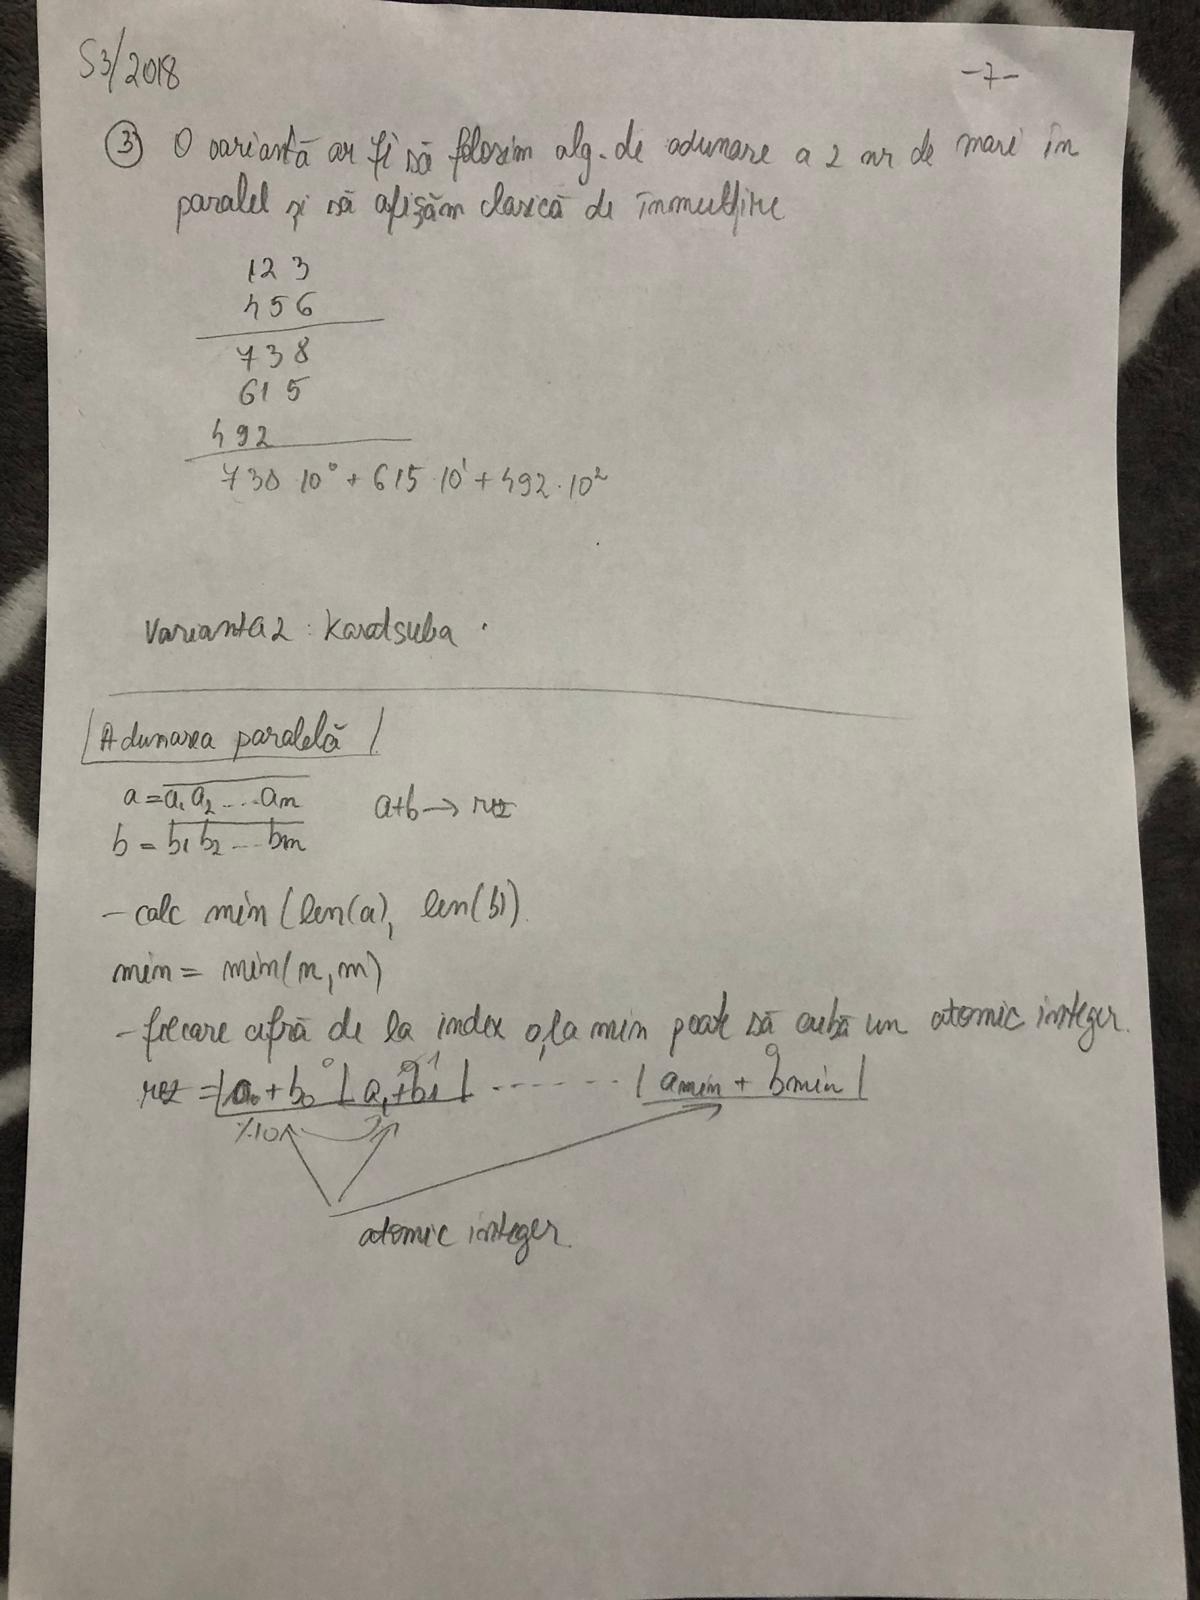 S3/2018
-7-
③ O variantă ar fi să folosim alg. de adunare a 2 nr de mari în
paralel și să afișăm clasică de înmulțire
123
456
738
615
492
738 · 10⁰ + 615 · 10¹ + 492 · 10²
Varianta 2 : Karatsuba
Adunarea paralelă
a = a₁ a₂ ... an
a+b → rez
b = b₁ b₂ ... bm
- calc min (len(a), len(b))
min = min(n, m)
- fiecare cifră de la index 0, la min poate să aibă un atomic integer.
rez = | a₀ + b₀ | a₁ + b₁ | ------- | amin + bmin |
%10
atomic integer